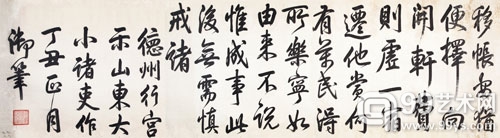 移帳猶
便擇向
開軒實
則虛一
遷他當何
有萬民得
所樂寧如
由來不說
惟成事此
後無需慎
戒諸
德州行宮
示山東大
小諸吏作
丁丑正月
御筆
99艺术网